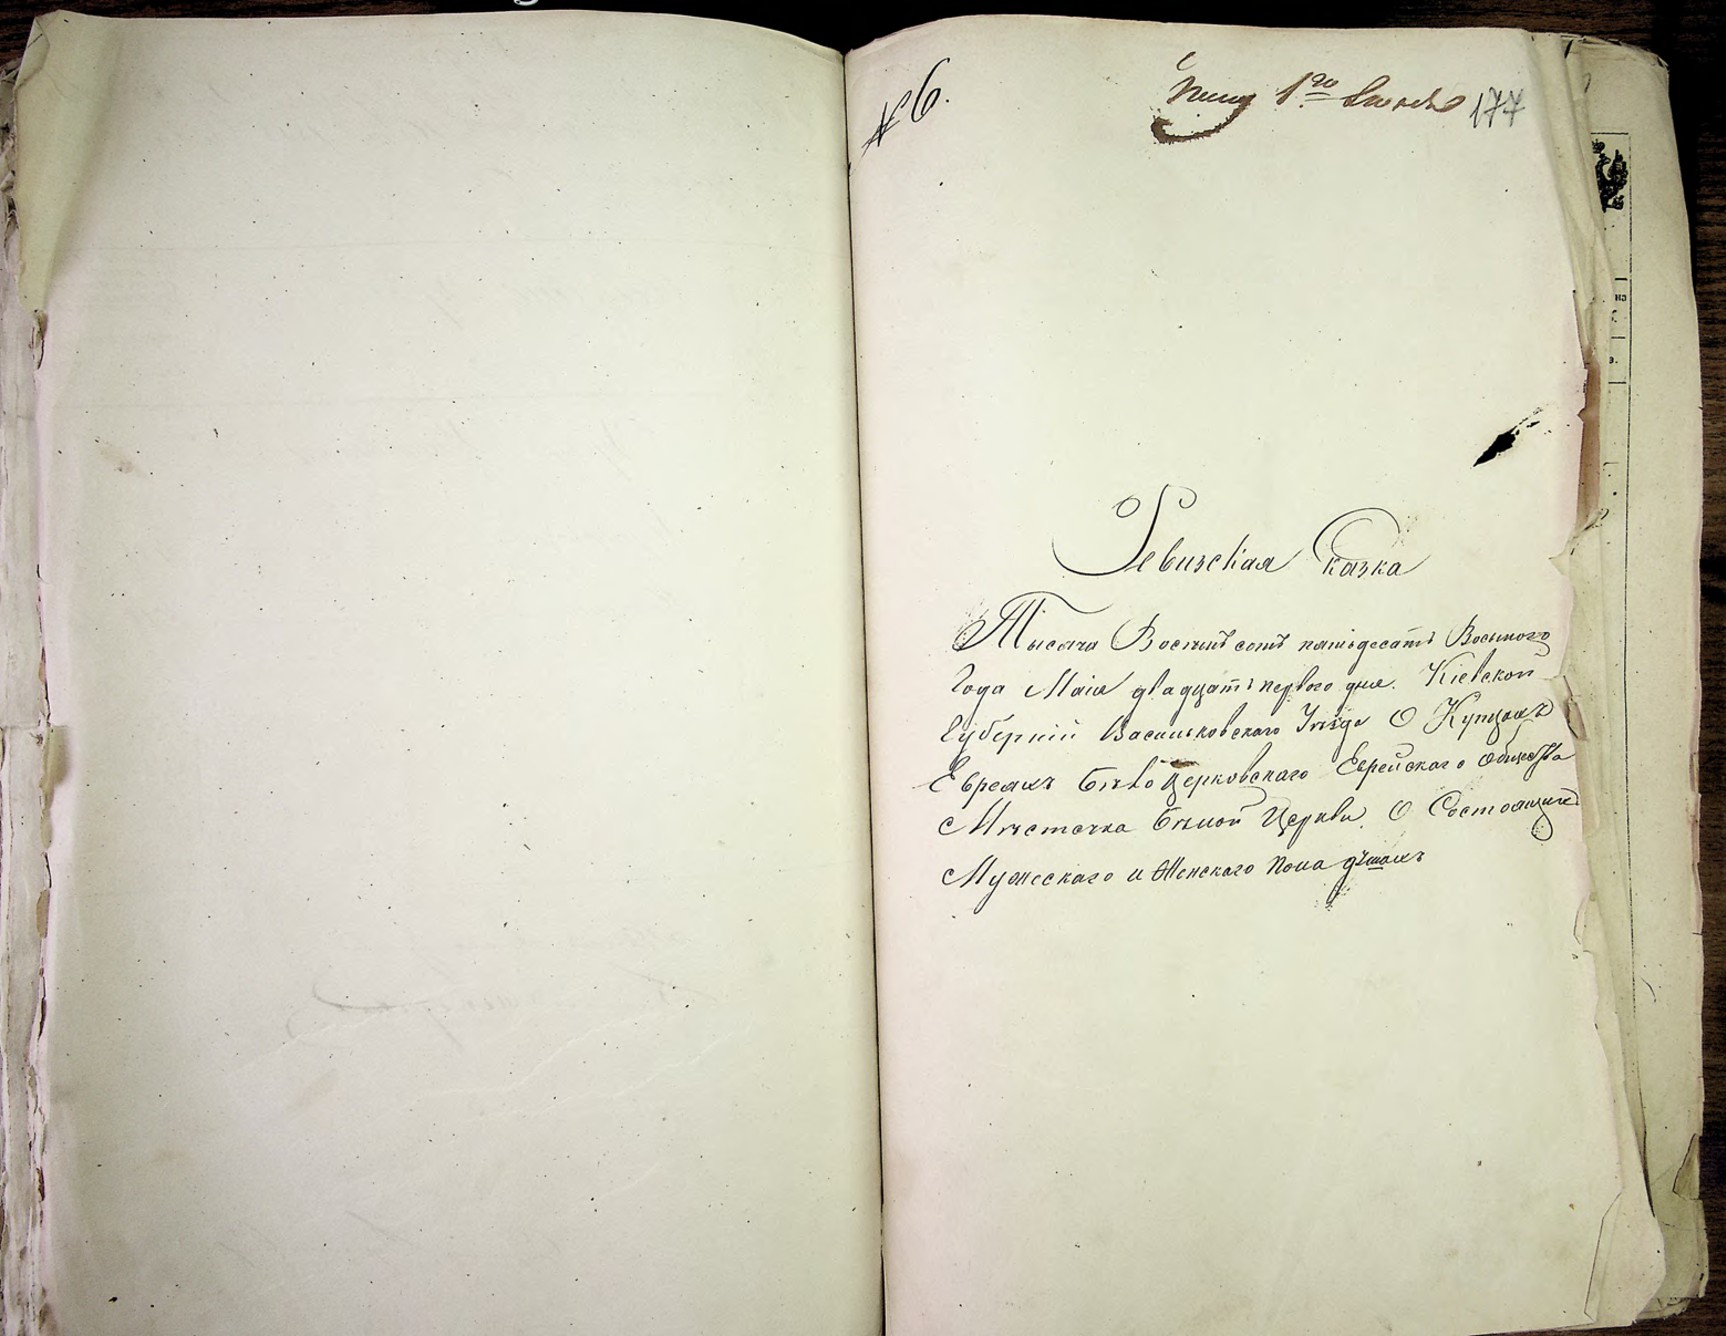 № 6.
1го 177
Ревизская Сказка
Тысяча Восемь сотъ пятьдесятъ Восьмого
Года Маія двадцать первого дня. Кіевской
Губерніи Васильковского Уѣзда О Купцахъ
Евреяхъ Бѣлоцерковскаго Еврейскаго общества
Мѣстечка Бѣлой Церкви. О Состоящихъ
Мужескаго и Женскаго пола душахъ